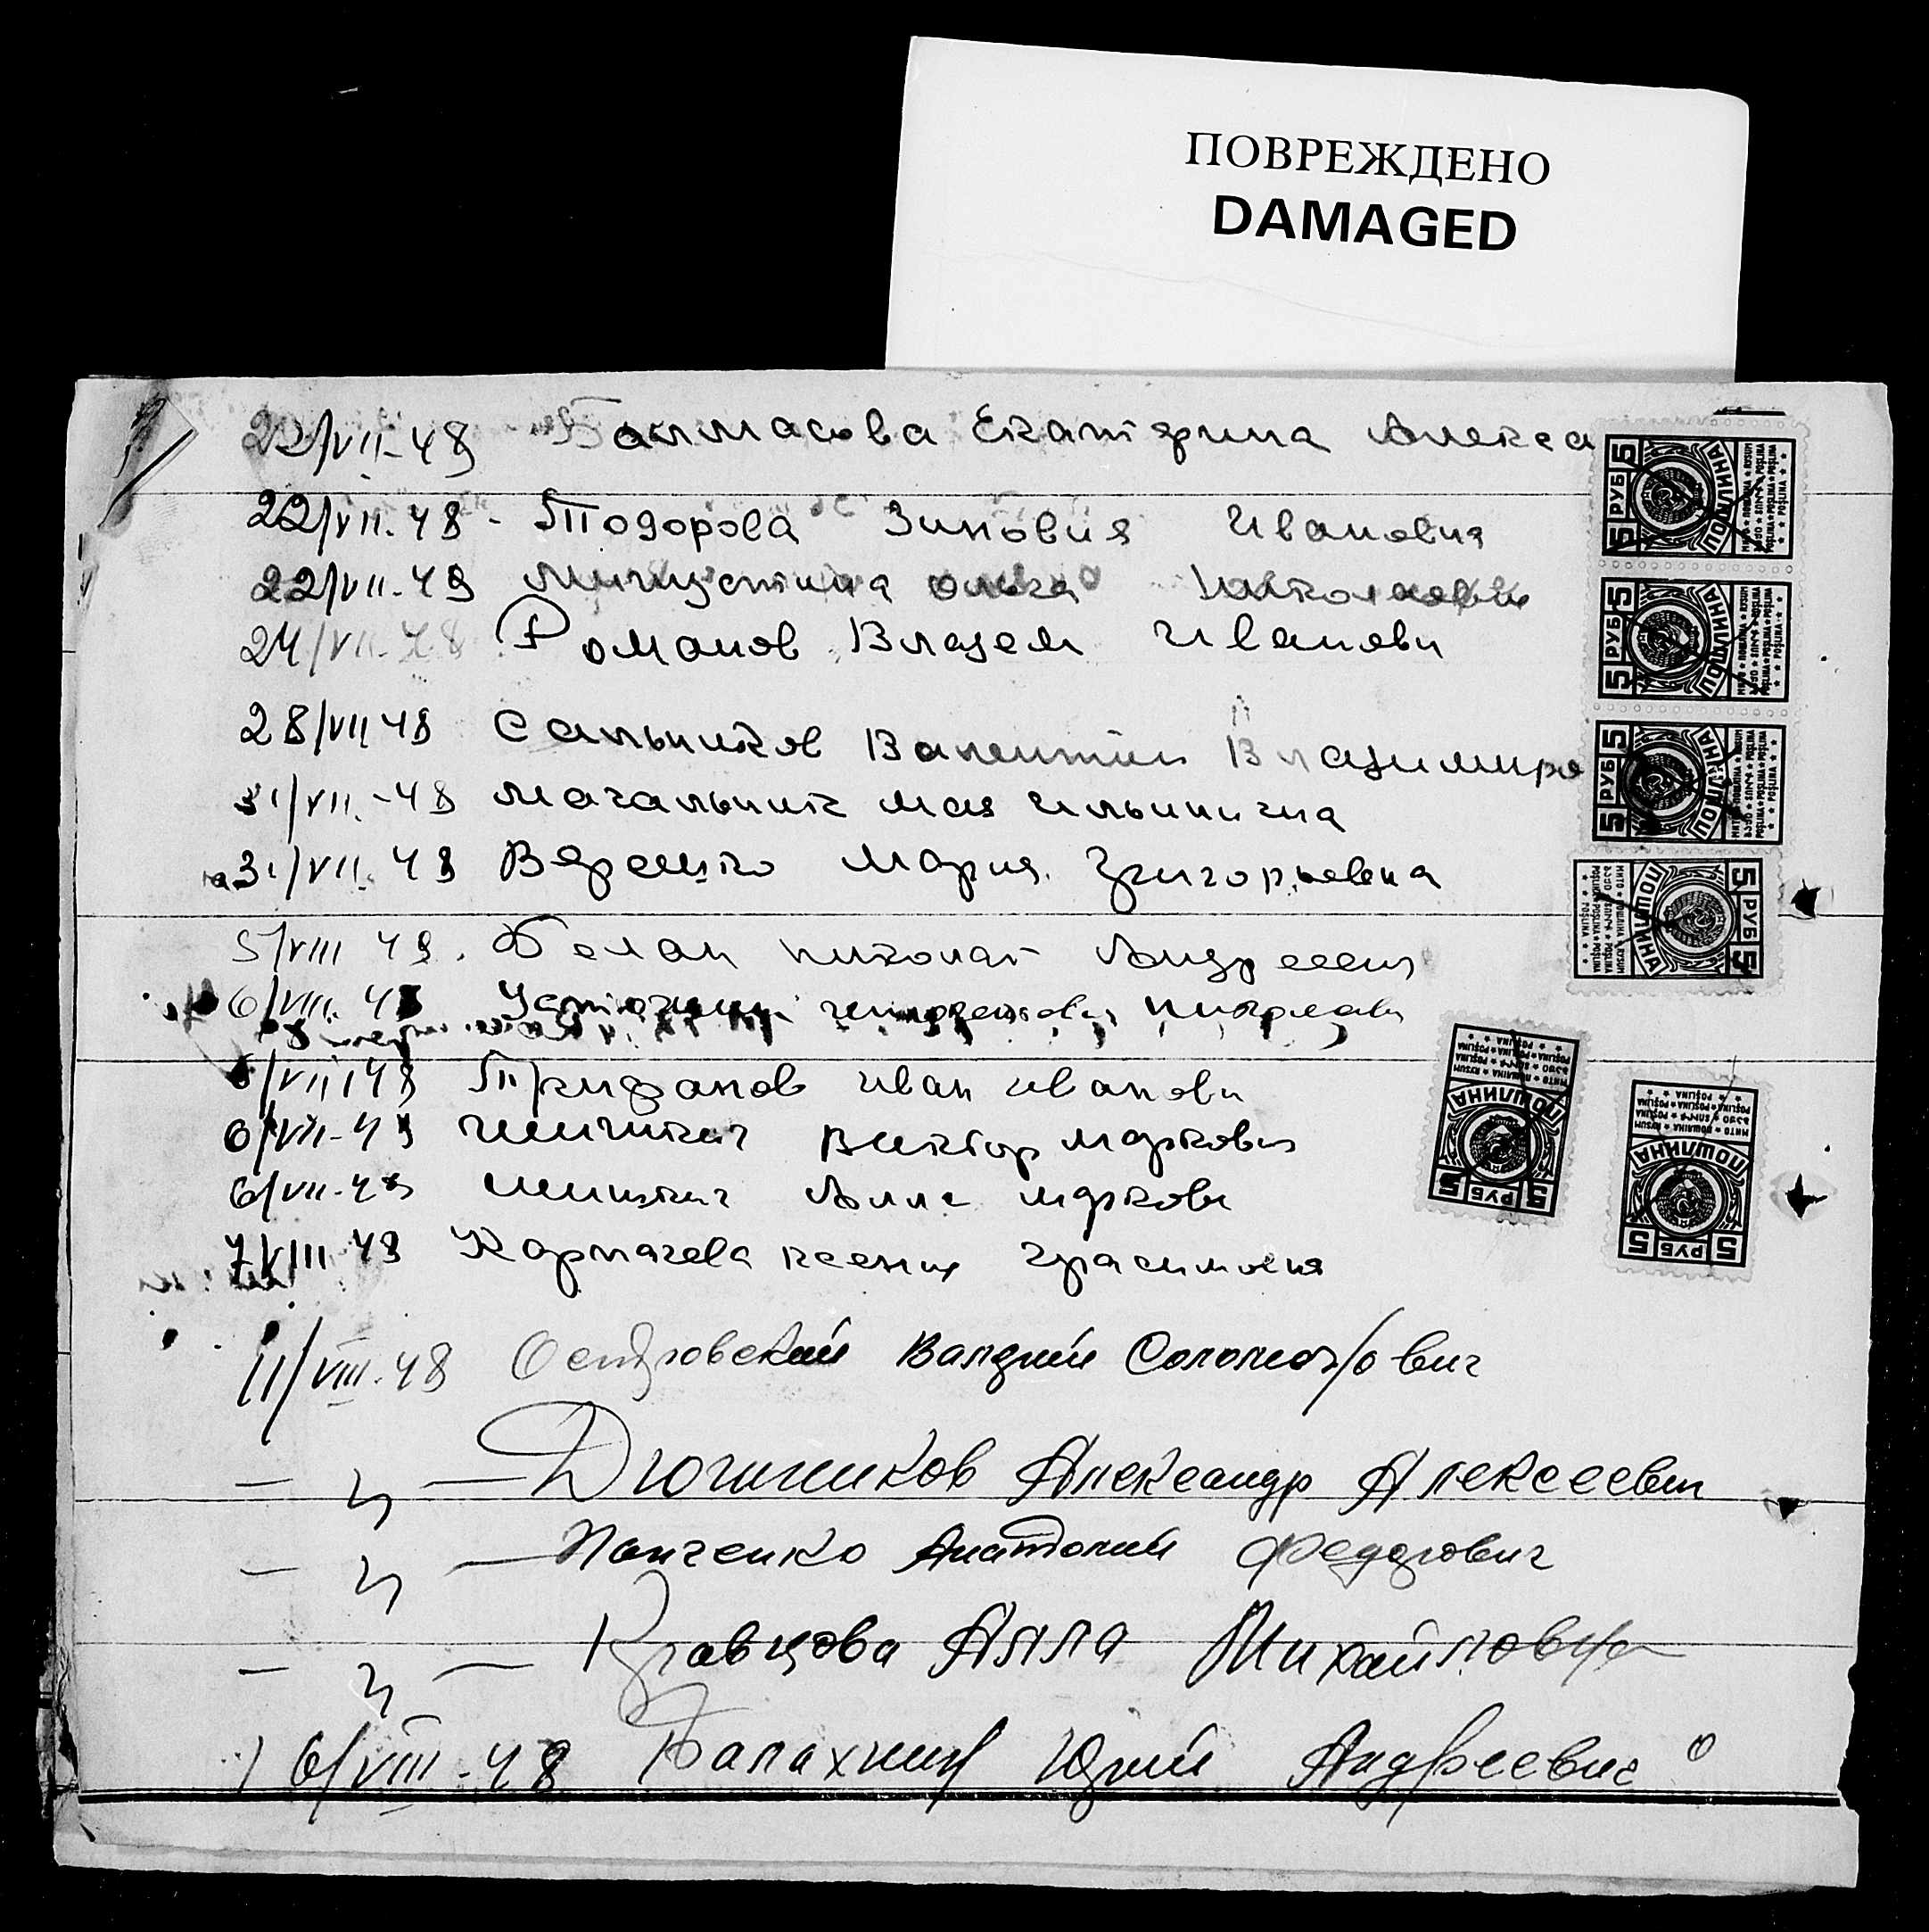 ПОВРЕЖДЕНО
DAMAGED
22/VII-48 Балмасова Екатярина Алекса
22/VII.48 - Тодорова Зиновия Ивановия
22/VII.48 Ольга
24/VII.48 Романов Владем Иванови
28/VII 48 Сальников Валентин Владимиро
31/VII.-48 Магальник Мая Ильинична
31/VII. 48 Верешко Мария Григорьевна
5/VIII 48. Белан Николай Андреевич
6/VIII. 48
6/VIII 48 Трифанов Иван Иванови
6/VII-48 Шишкич Виктор Маркович
6/VII-48 Шишкич Алла Маркови
7/VIII 48 Карпачева Ксения
11/VIII.48 Островский Валдий Соломонович
— " — Дюжиков Александр Алексеевич
— " — Панченко Анатолий Федорович
— " — Кравцова Алла Михайловна
16/VIII-48 Балахнин Юрий Андреевич
5 РУБ 5
ПОШЛИНА
5 РУБ 5
ПОШЛИНА
5 РУБ 5
ПОШЛИНА
5 РУБ 5
ПОШЛИНА
5 РУБ 5
ПОШЛИНА
5 РУБ 5
ПОШЛИНА